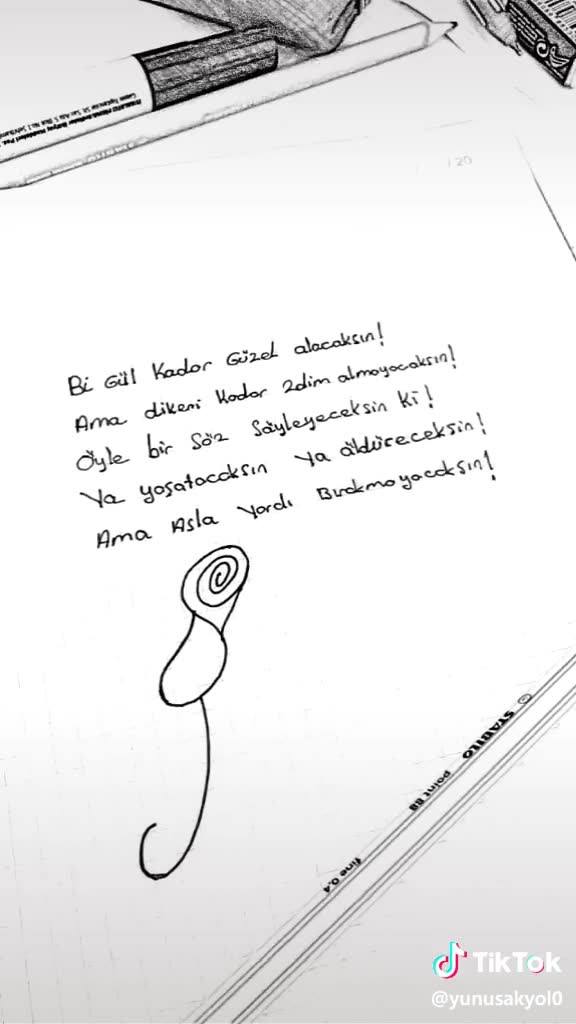 / 20
Bi Gül Kadar Güzel alacaksın!
Ama dikeni Kadar zalim almayacaksın!
Öyle bir Söz Söyleyeceksin Ki!
Ya yaşatacaksın Ya öldüreceksin!
Ama Asla Yardı Bırakmayacaksın!
STABILO
point 88
fine 0,4
TikTok
@yunusakyol0